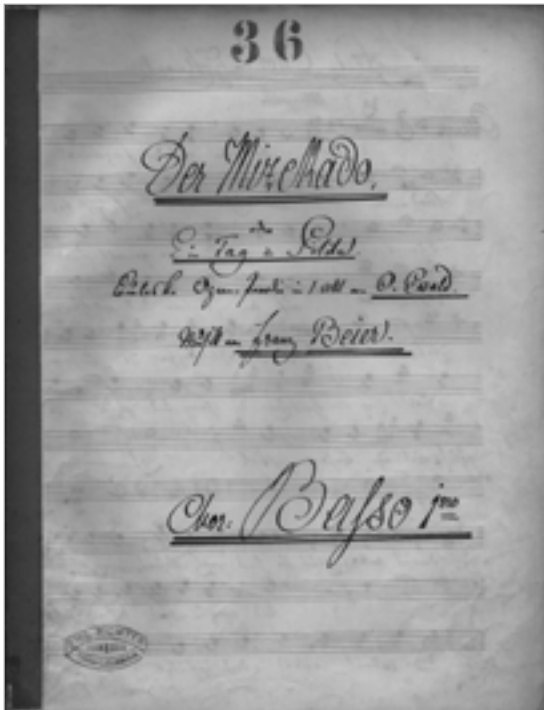 36
Der Mizekado.
oder
Ein Tag in
Operu. Parodie in 1 Akt von O. Ewald.
Musik von Franz Beier.
Chor: Basso 1mo